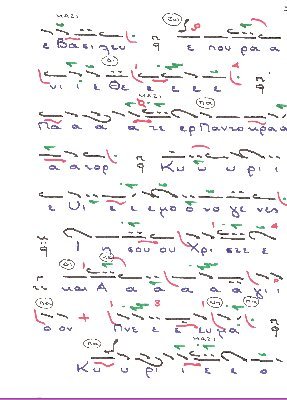 ΜΑΖΙ
ε Βα σι λευ ε που ρα α
νι ι ε Θε ε ε ε ε
ΜΑΖΙ
Πα α α α τε ερ Παν το κρα α
α α τορ Κυ υ υ ρι ι
ε Υι ε ε ε μο ο νο γε νες
Ι η σου ου Χρι στε ε
και Α α α α α γι ι
ο ον + Πνε ε ε ευ μα
ΜΑΖΙ
Κυ υ ρι ι ε ε ο